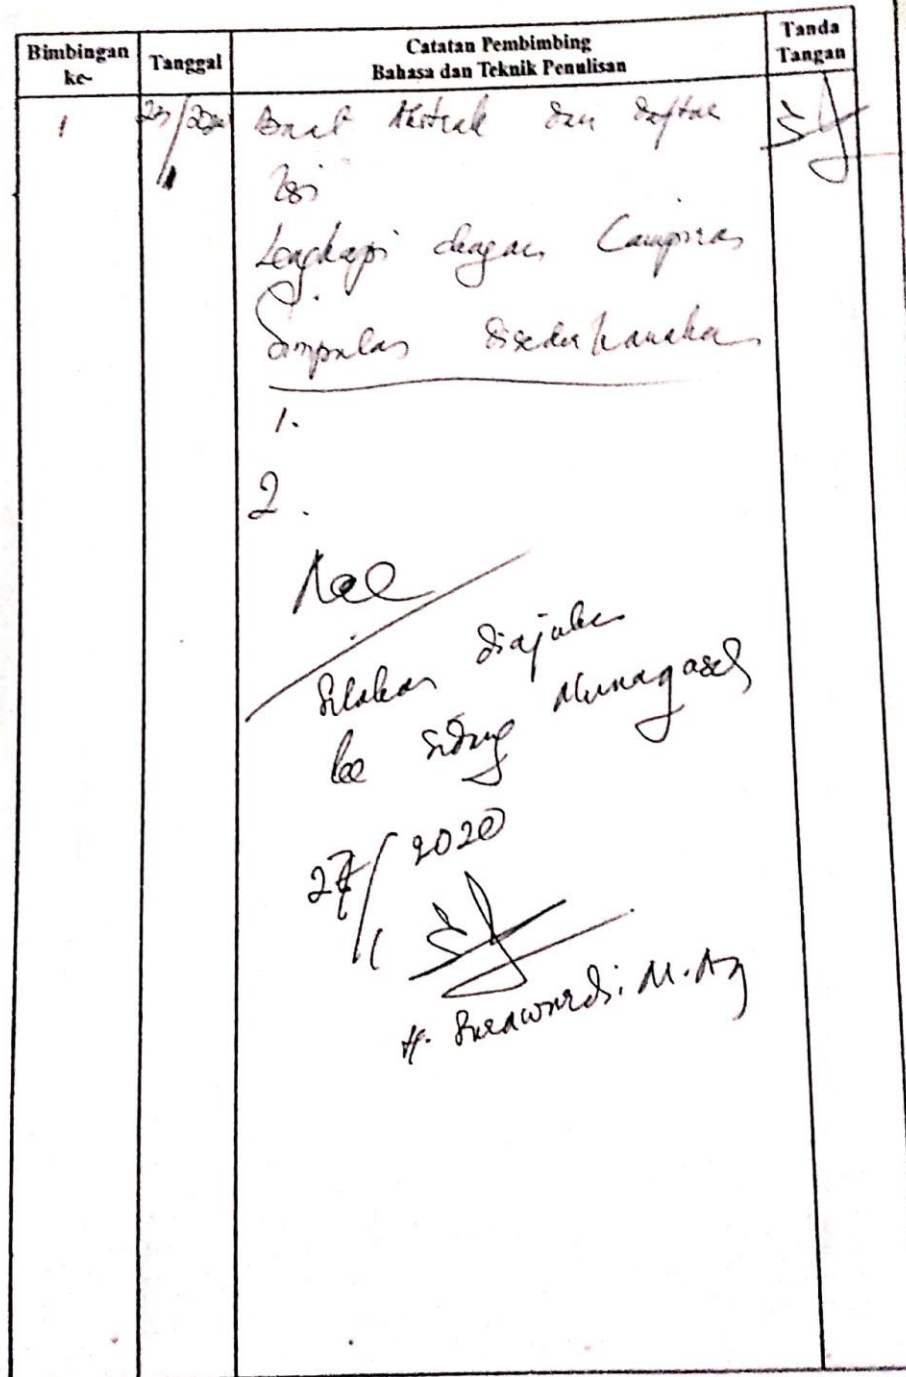 Bimbingan ke-
Tanggal
Catatan Pembimbing
Bahasa dan Teknik Penulisan
Tanda Tangan
1
Buat Abstrak dan daftar
Isi
Lengkapi dengan Lampiran
Simpulan disederhanakan
1.
2.
Acc
Silakan diajukan
ke sidang Munaqasah
27/1 2020
H. Surawardi, M.Ag